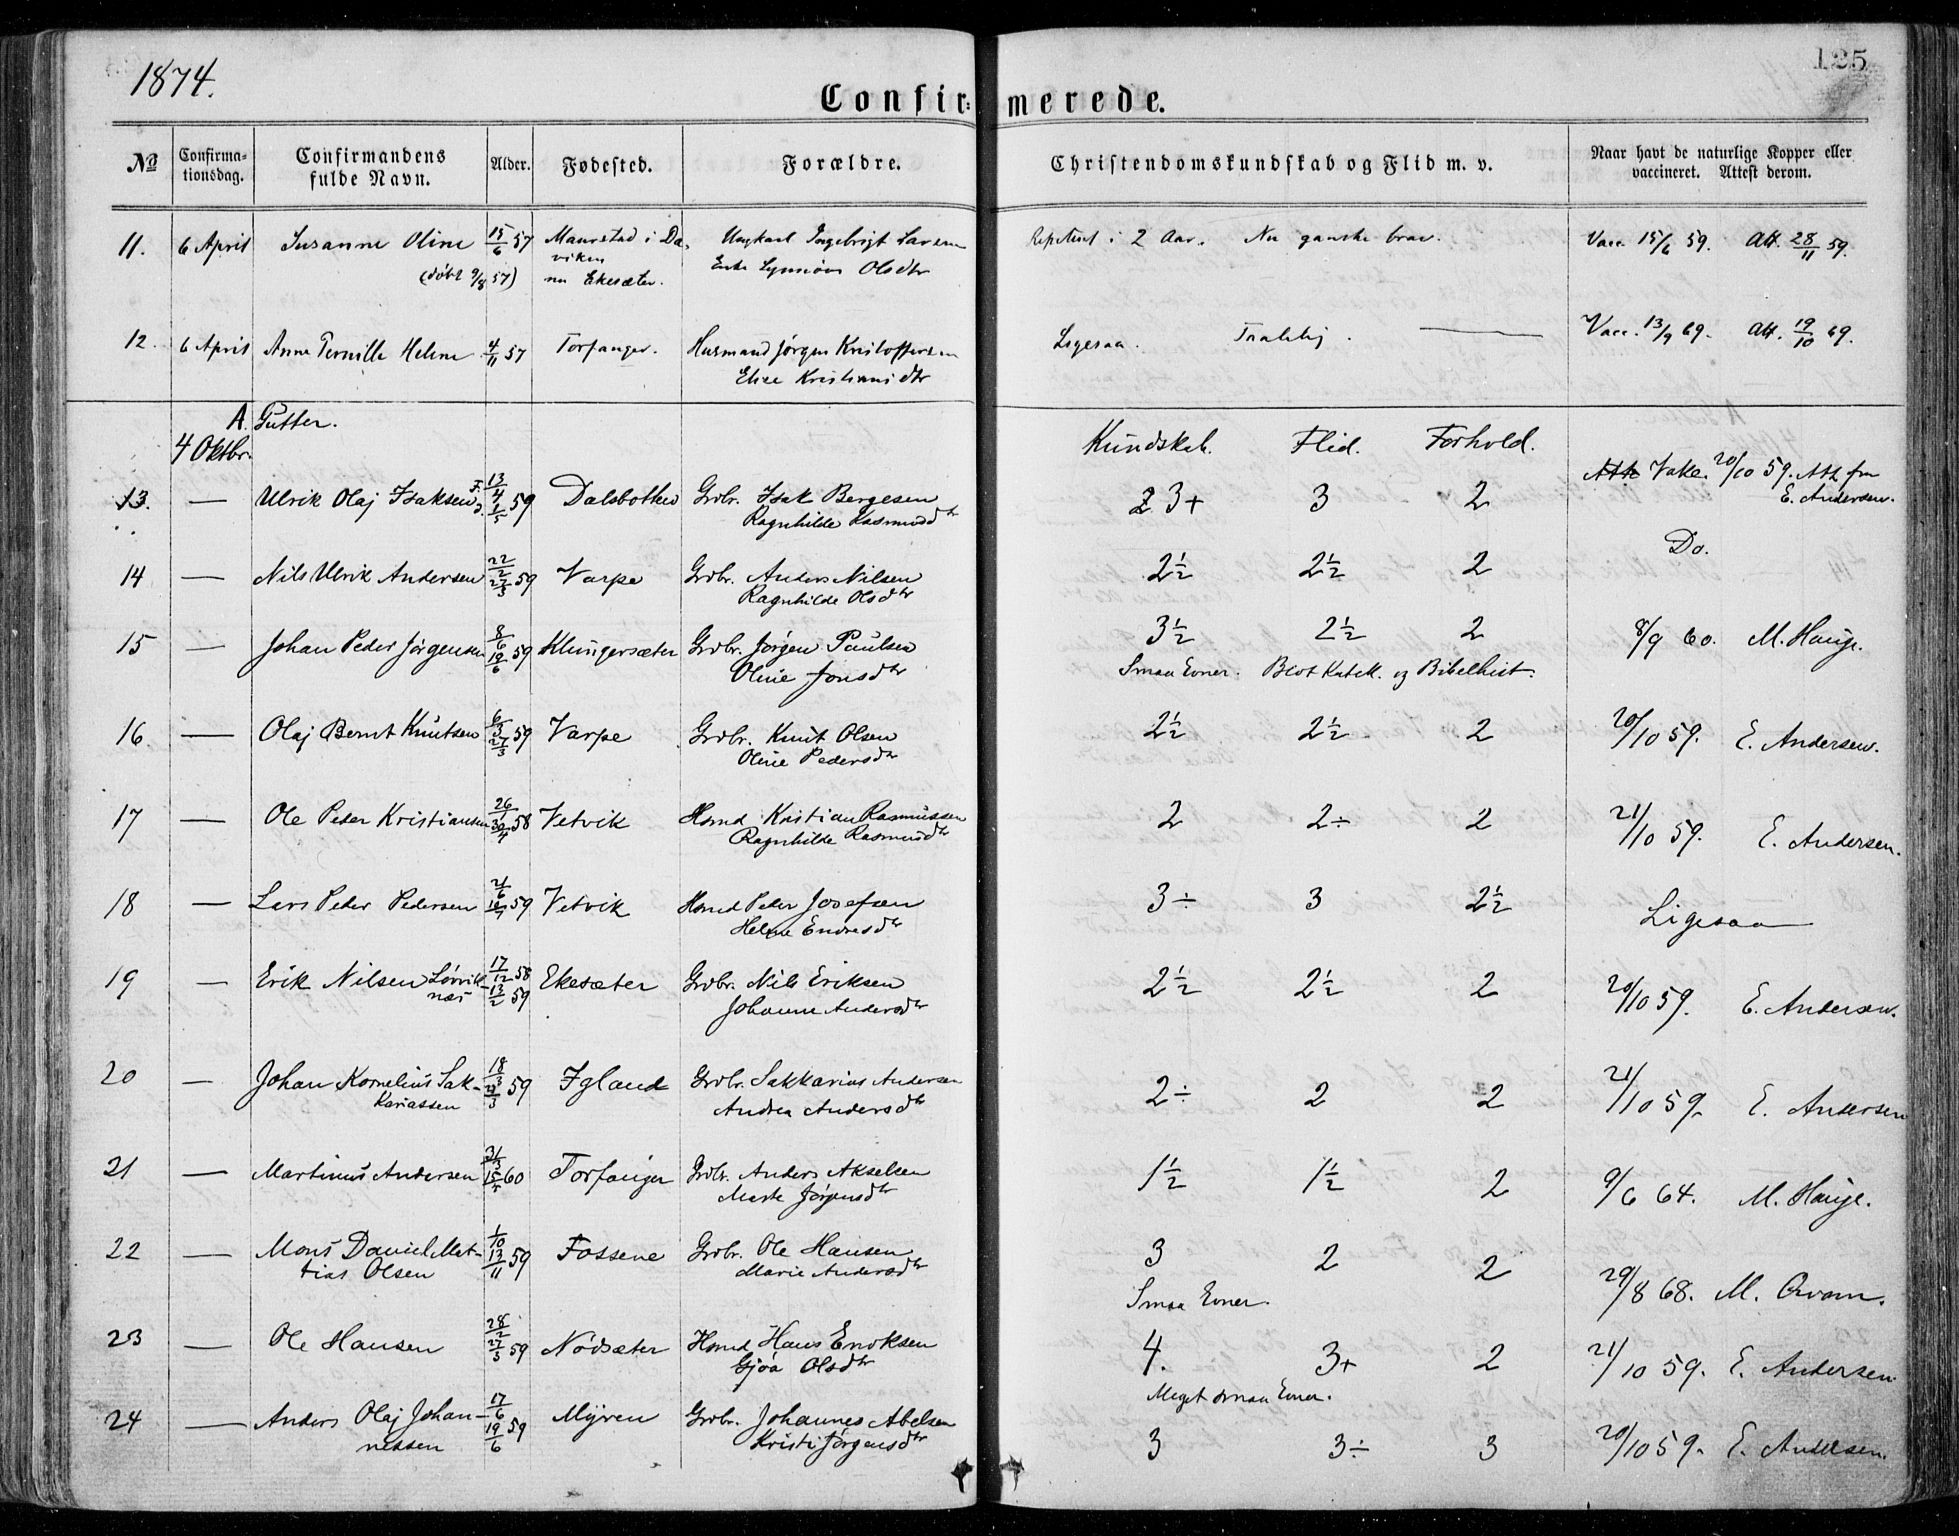 1874.
125
Confir= merede.
No Confirma-tionsdag. Confirmandens fulde Navn. Alder. Fødested. Forældre. Christendomskundskab og Flid m. v. Naar havt de naturlige Kopper eller vaccineret. Attest derom.
11. 6 April Susanne Oline 15/6 57 Maurstad i Da- Ungkarl Ingebrigt Larsen Repetent i 2 Aar. Nu ganske brav. Vacc. 15/6 59. Att. 28/11 59.
(døbt 9/8 57) viken nu Ekesæter. Enke Synnøve Olsdtr
12. 6 April Anne Pernille Helene 4/11 57 Torfanger. Husmand Jørgen Kristoffersen Ligesaa. Vacc. 13/9 69. Att. 19/10 69.
Elise Kristiansdtr
A. Gutter.
4 Oktbr. Kundskab. Flid. Forhold.
13. — Ulrik Olaj Isaksen F. 13/4 D. 1/5 59 Dalsbotten Grdbr. Isak Bergesen 3+ 3 2 Vakc. 20/10 59. Att. fra
Ragnhilde Rasmusdtr E. Andersen.
14 — Nils Ulrik Andersen 22/2 27/3 59 Varpe Grdbr. Anders Nilsen 2½ 2½ 2 Do.
Ragnhilde Olsdtr
15 — Johan Peder Jørgensen 8/6 19/6 59 Klungersæter Grdbr. Jørgen Paulsen 3½ 2½ 2 8/9 60. M. Hauge.
Oline Jonsdtr Smaa Evner. Blot Katek. og Bibelhist.
16 — Olaj Bernt Knutsen 6/3 27/3 59 Varpe Grdbr. Knut Olsen 2½ 2½ 2 20/10 59. E. Andersen.
Oline Pedersdtr
17 — Ole Peder Kristiansen 26/1 30/4 58 Vetvik Hsmd. Kristian Rasmussen 2 2÷ 2 21/10 59. E. Andersen.
Ragnhilde Rasmusdtr
18 — Lars Peder Pedersen 21/6 59 Vetvik Hsmd Peder Josefsen 3÷ 3 2½ Ligesaa
Helene Endresdtr
19 — Erik Nilsen Lørvik- 17/12 58 Ekesæter Grdbr. Nils Eriksen 2½ 2½ 2 20/10 59. E. Andersen.
næs 13/2 59 Johanne Andersdtr
20 — Johan Kornelius Sak- 18/3 59 Igland Grdbr. Sakkarias Andersen 2÷ 2 2 21/10 59. E. Andersen
kariassen Andrea Andersdtr
21 — Martinus Andersen 31/3 60 Torfanger Grdbr. Anders Akselsen 1½ 1½ 2 9/6 64. M. Hauge.
Marte Jørgensdtr
22 — Mons Daniel Mat- 1/10 13/11 59 Fossene Grdbr. Ole Hansen 3 2 2 29/8 68. M. Qvam.
tias Olsen Marie Andersdtr Smaa Evner.
23 — Ole Hansen 28/2 27/3 59 Nødsæter Hsmd Hans Enoksen 4. 3+ 2 21/10 59. E. Andersen
Gjøa Olsdtr Meget smaa Evner.
24 — Anders Olaj Johan- 17/6 19/6 59 Myren Grdbr. Johannes Abelsen 3 3÷ 3 20/10 59. E. Andersen.
nessen Kristi Jørgensdtr